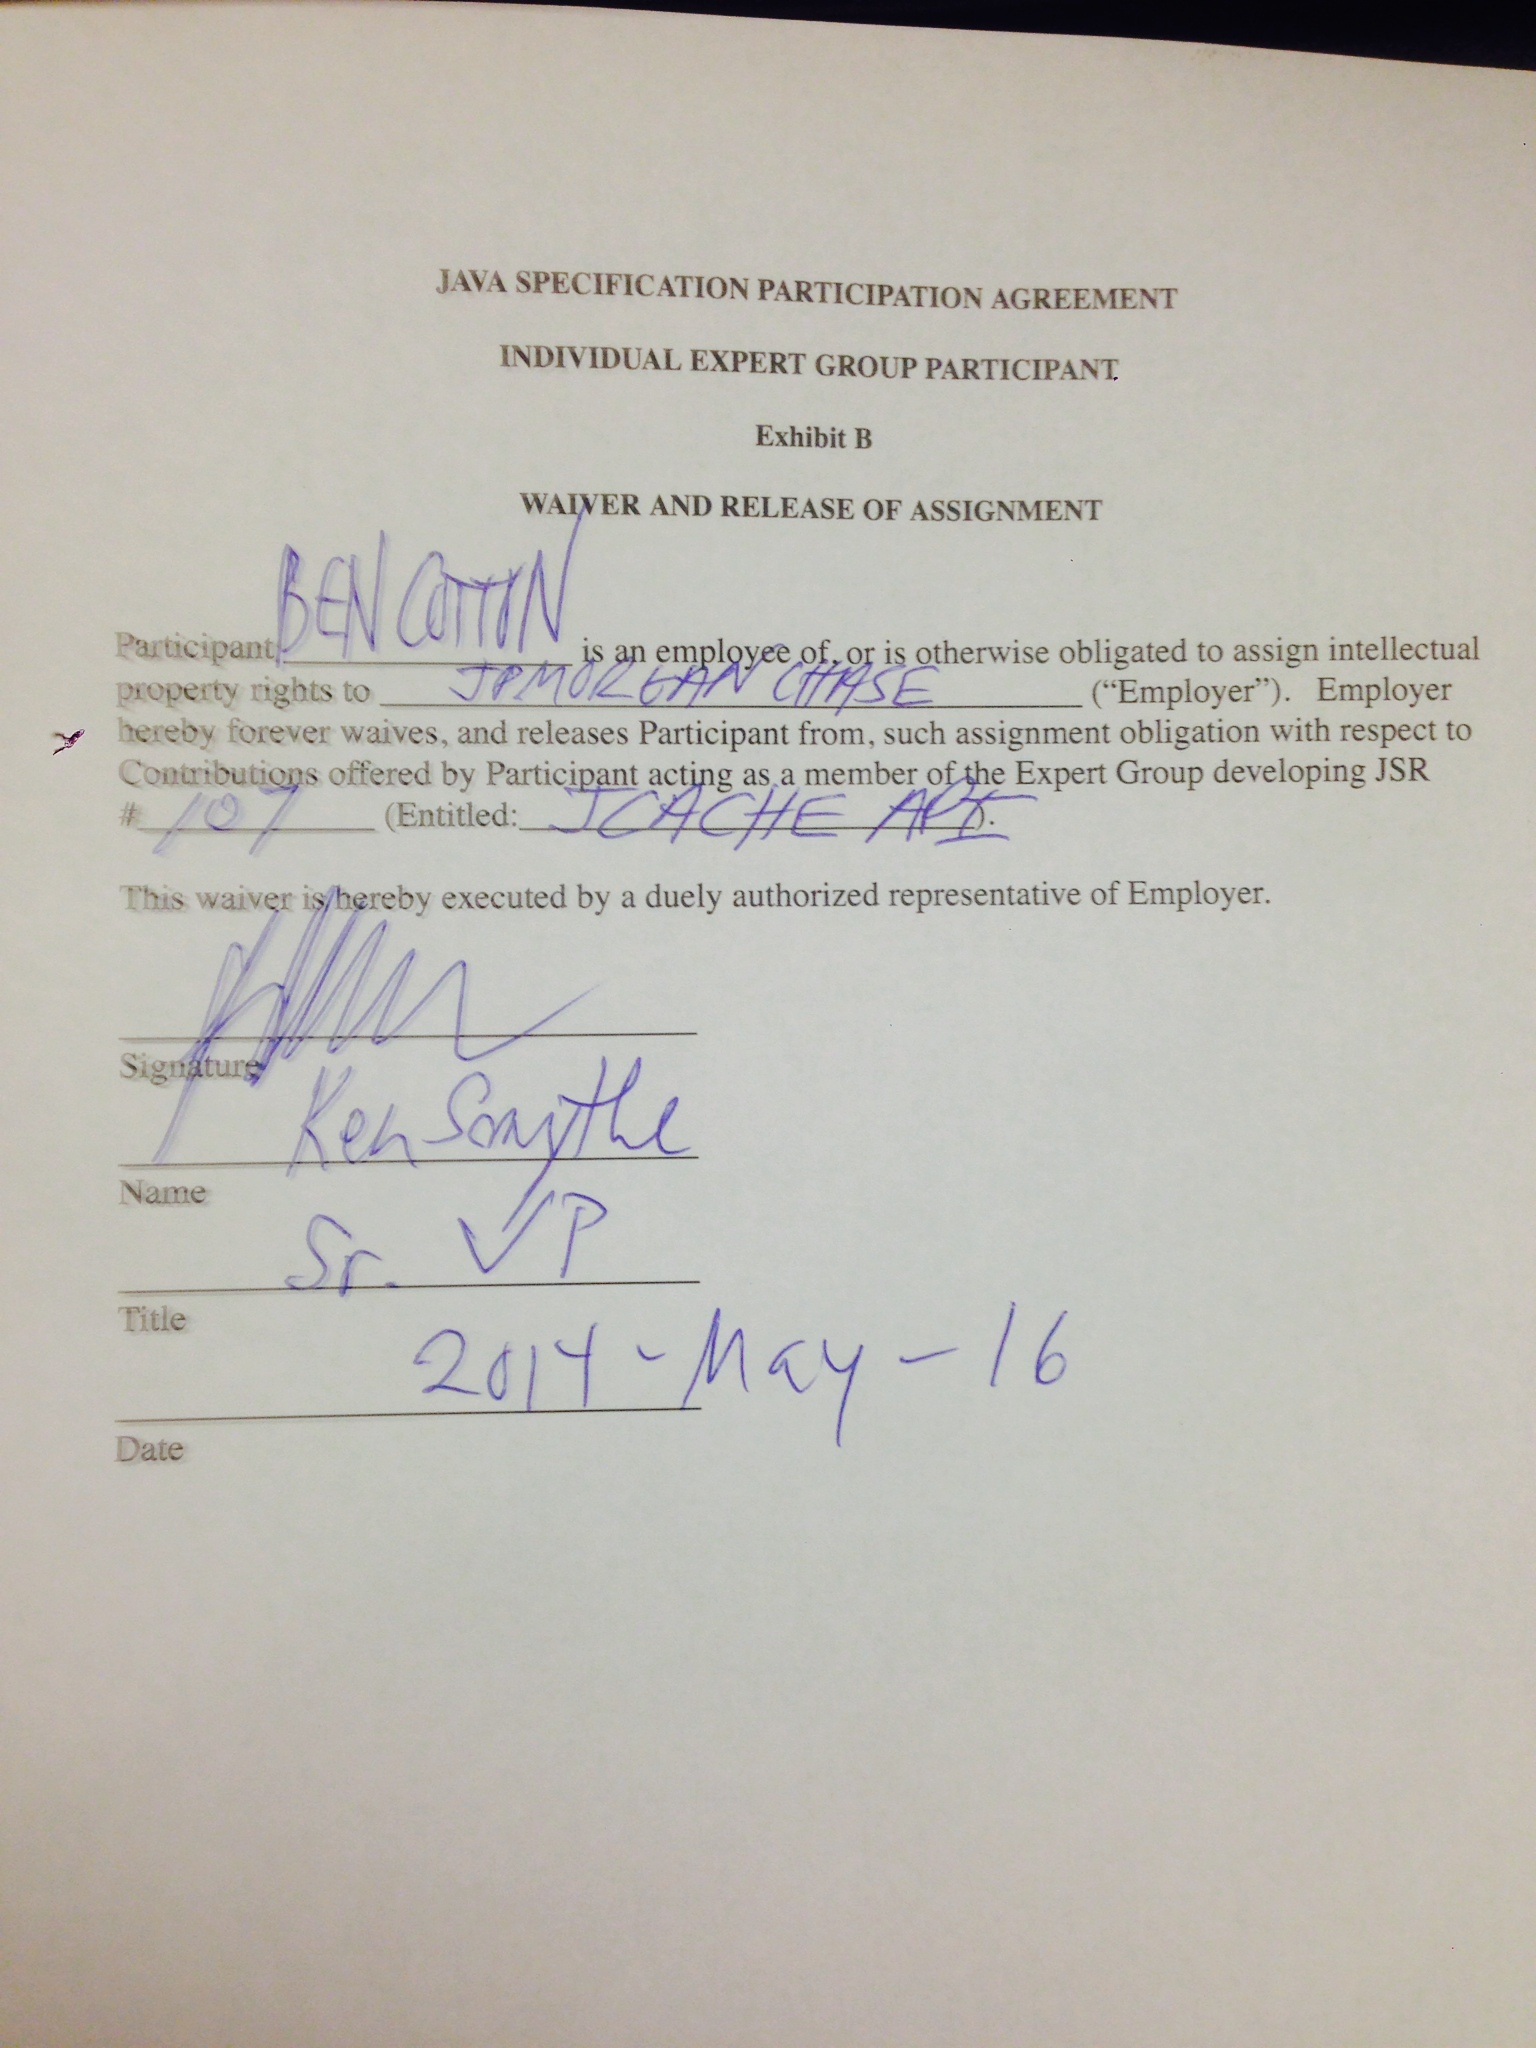 JAVA SPECIFICATION PARTICIPATION AGREEMENT
INDIVIDUAL EXPERT GROUP PARTICIPANT
Exhibit B
WAIVER AND RELEASE OF ASSIGNMENT
Participant BEN COTTON is an employee of, or is otherwise obligated to assign intellectual
property rights to JPMORGAN CHASE (“Employer”). Employer
hereby forever waives, and releases Participant from, such assignment obligation with respect to
Contributions offered by Participant acting as a member of the Expert Group developing JSR
# 107 (Entitled: JCACHE API ).
This waiver is hereby executed by a duely authorized representative of Employer.
Signature
Ken Smythe
Name
Sr. VP
Title
2014 - May - 16
Date